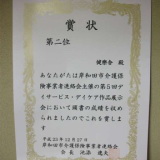 賞状
第二位
健樂会 殿
あなたがたは岸和田市介護保
険事業者連絡会主催の第5回デ
イサービス・デイケア作品展示
会において頭書の成績を収め
られましたのでこれを賞しま
す
平成25年12月17日
岸和田市介護保険事業者連絡会
会長